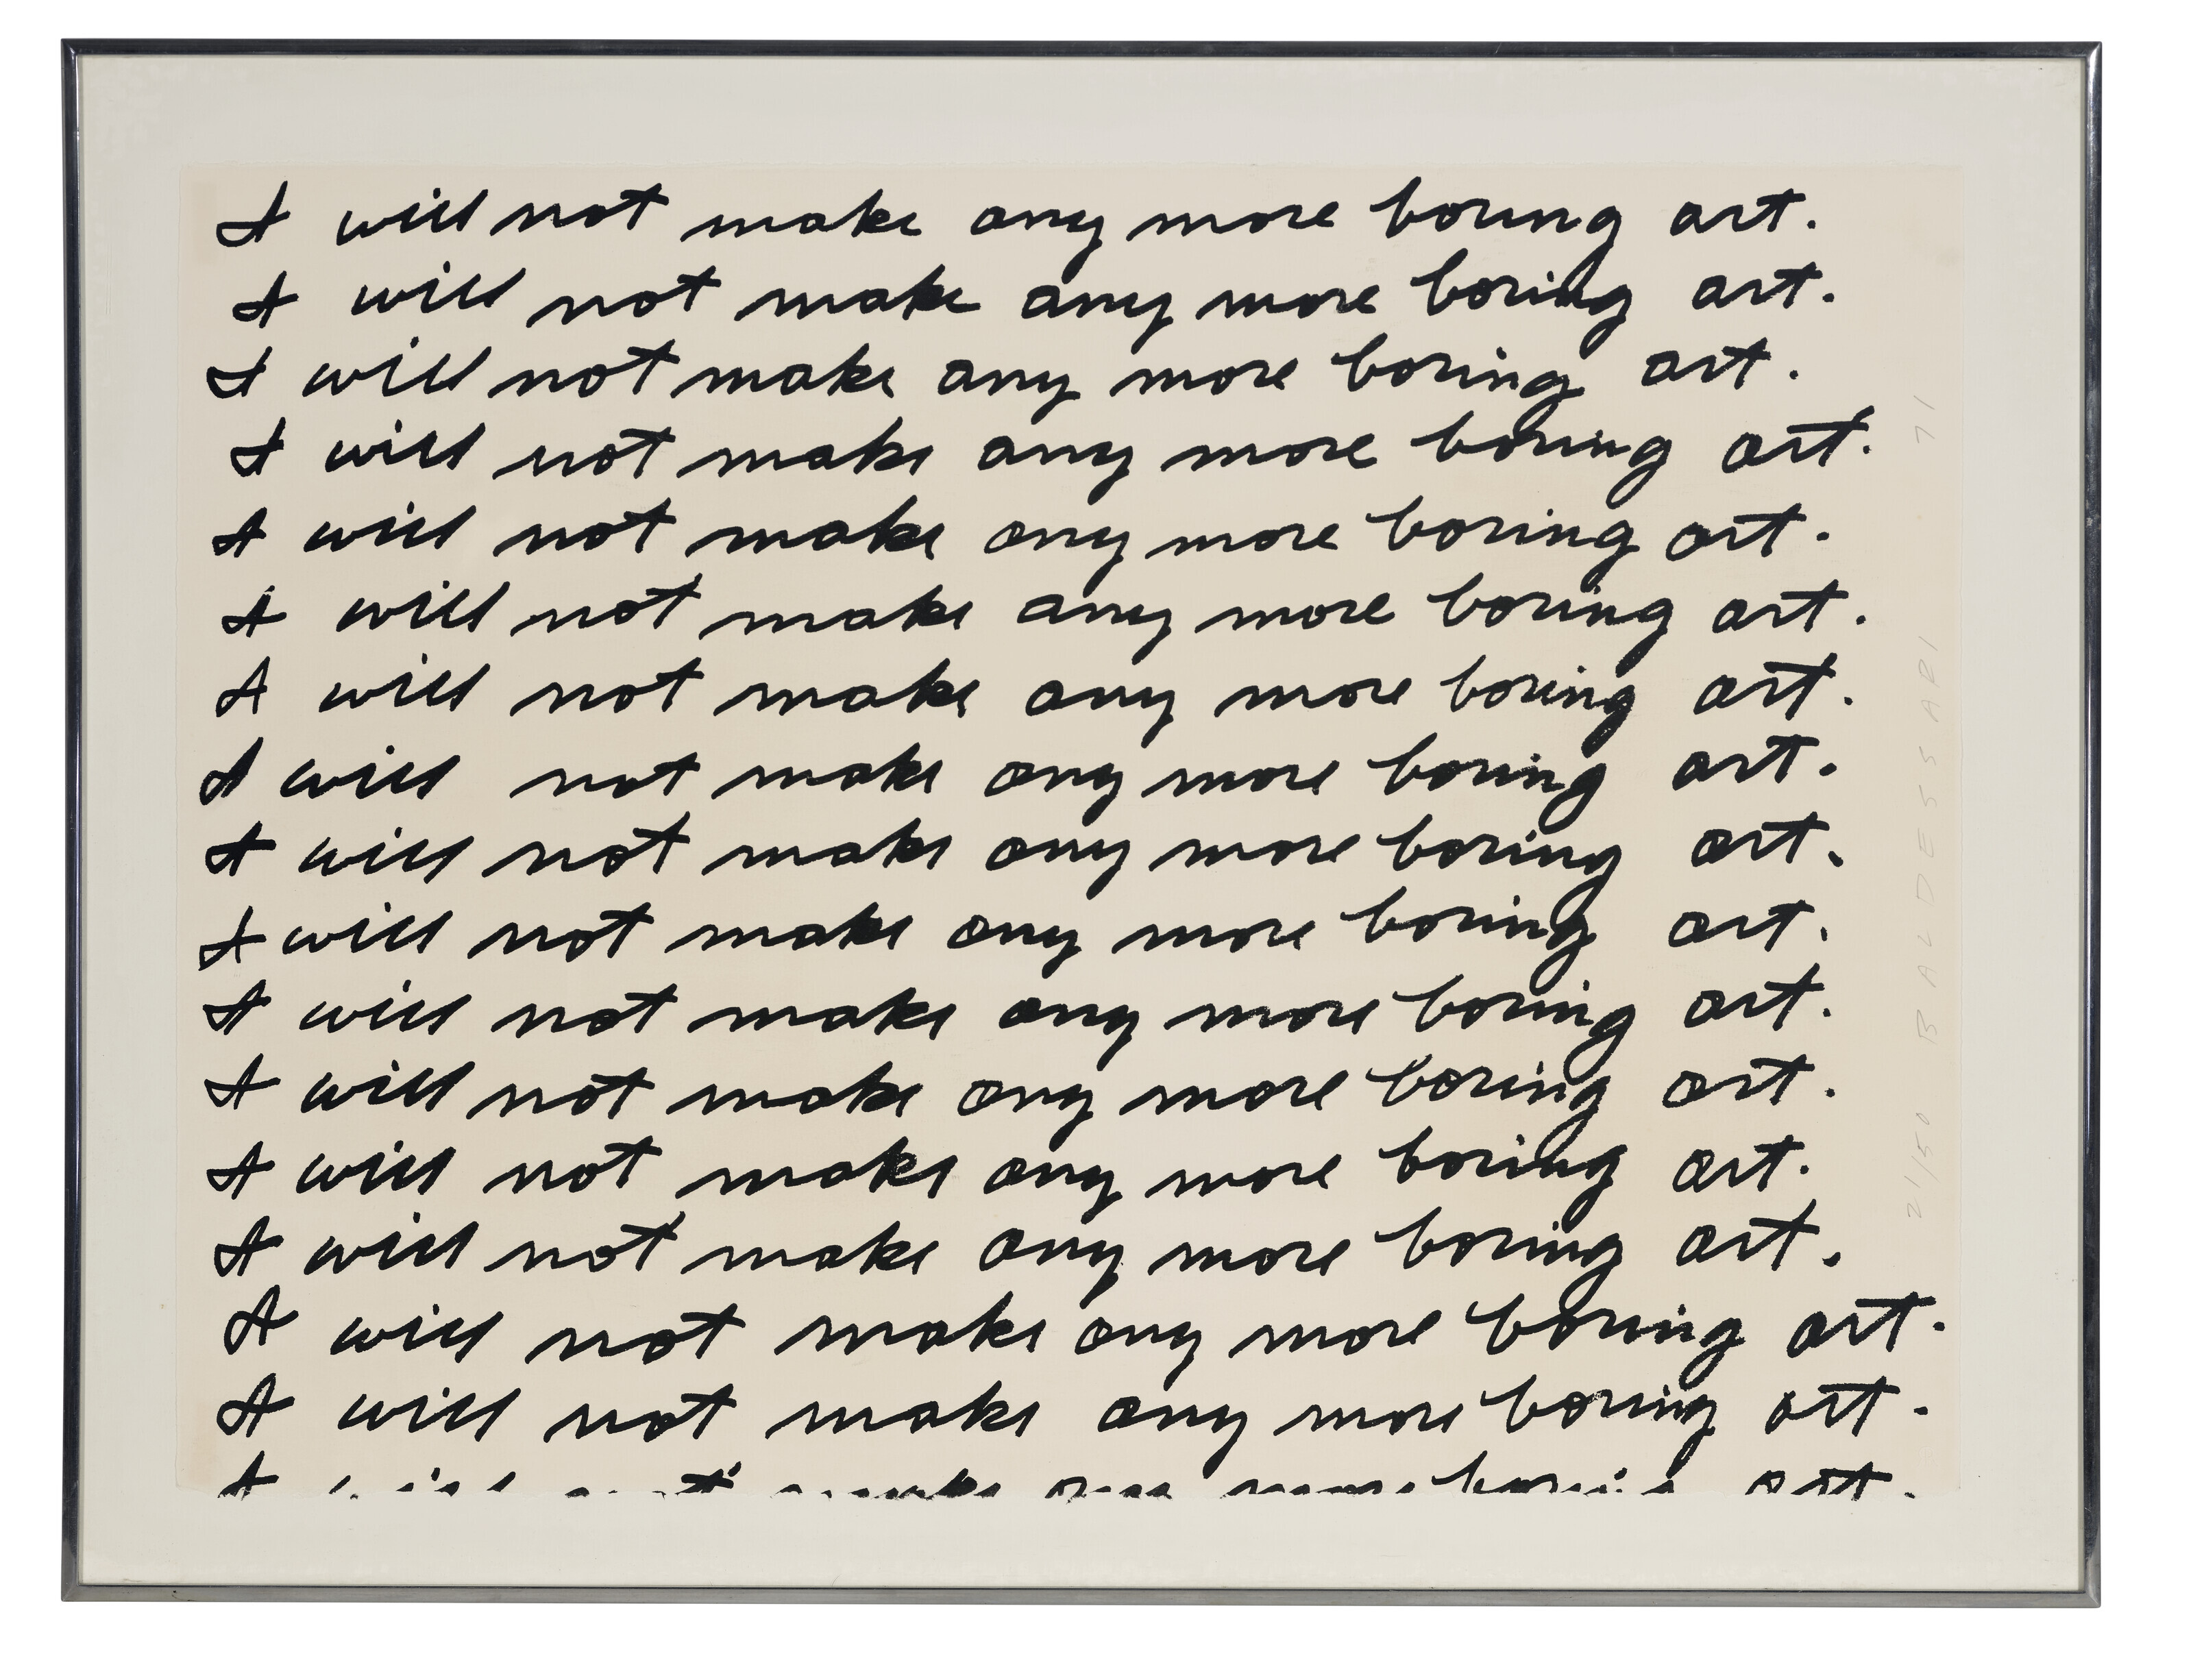 I will not make any more boring art.
I will not make any more boring art.
I will not make any more boring art.
I will not make any more boring art.
I will not make any more boring art.
I will not make any more boring art.
I will not make any more boring art.
I will not make any more boring art.
I will not make any more boring art.
I will not make any more boring art.
I will not make any more boring art.
I will not make any more boring art.
I will not make any more boring art.
I will not make any more boring art.
I will not make any more boring art.
I will not make any more boring art.
I will not make any more boring art.
21/50 BALDESSARI 71